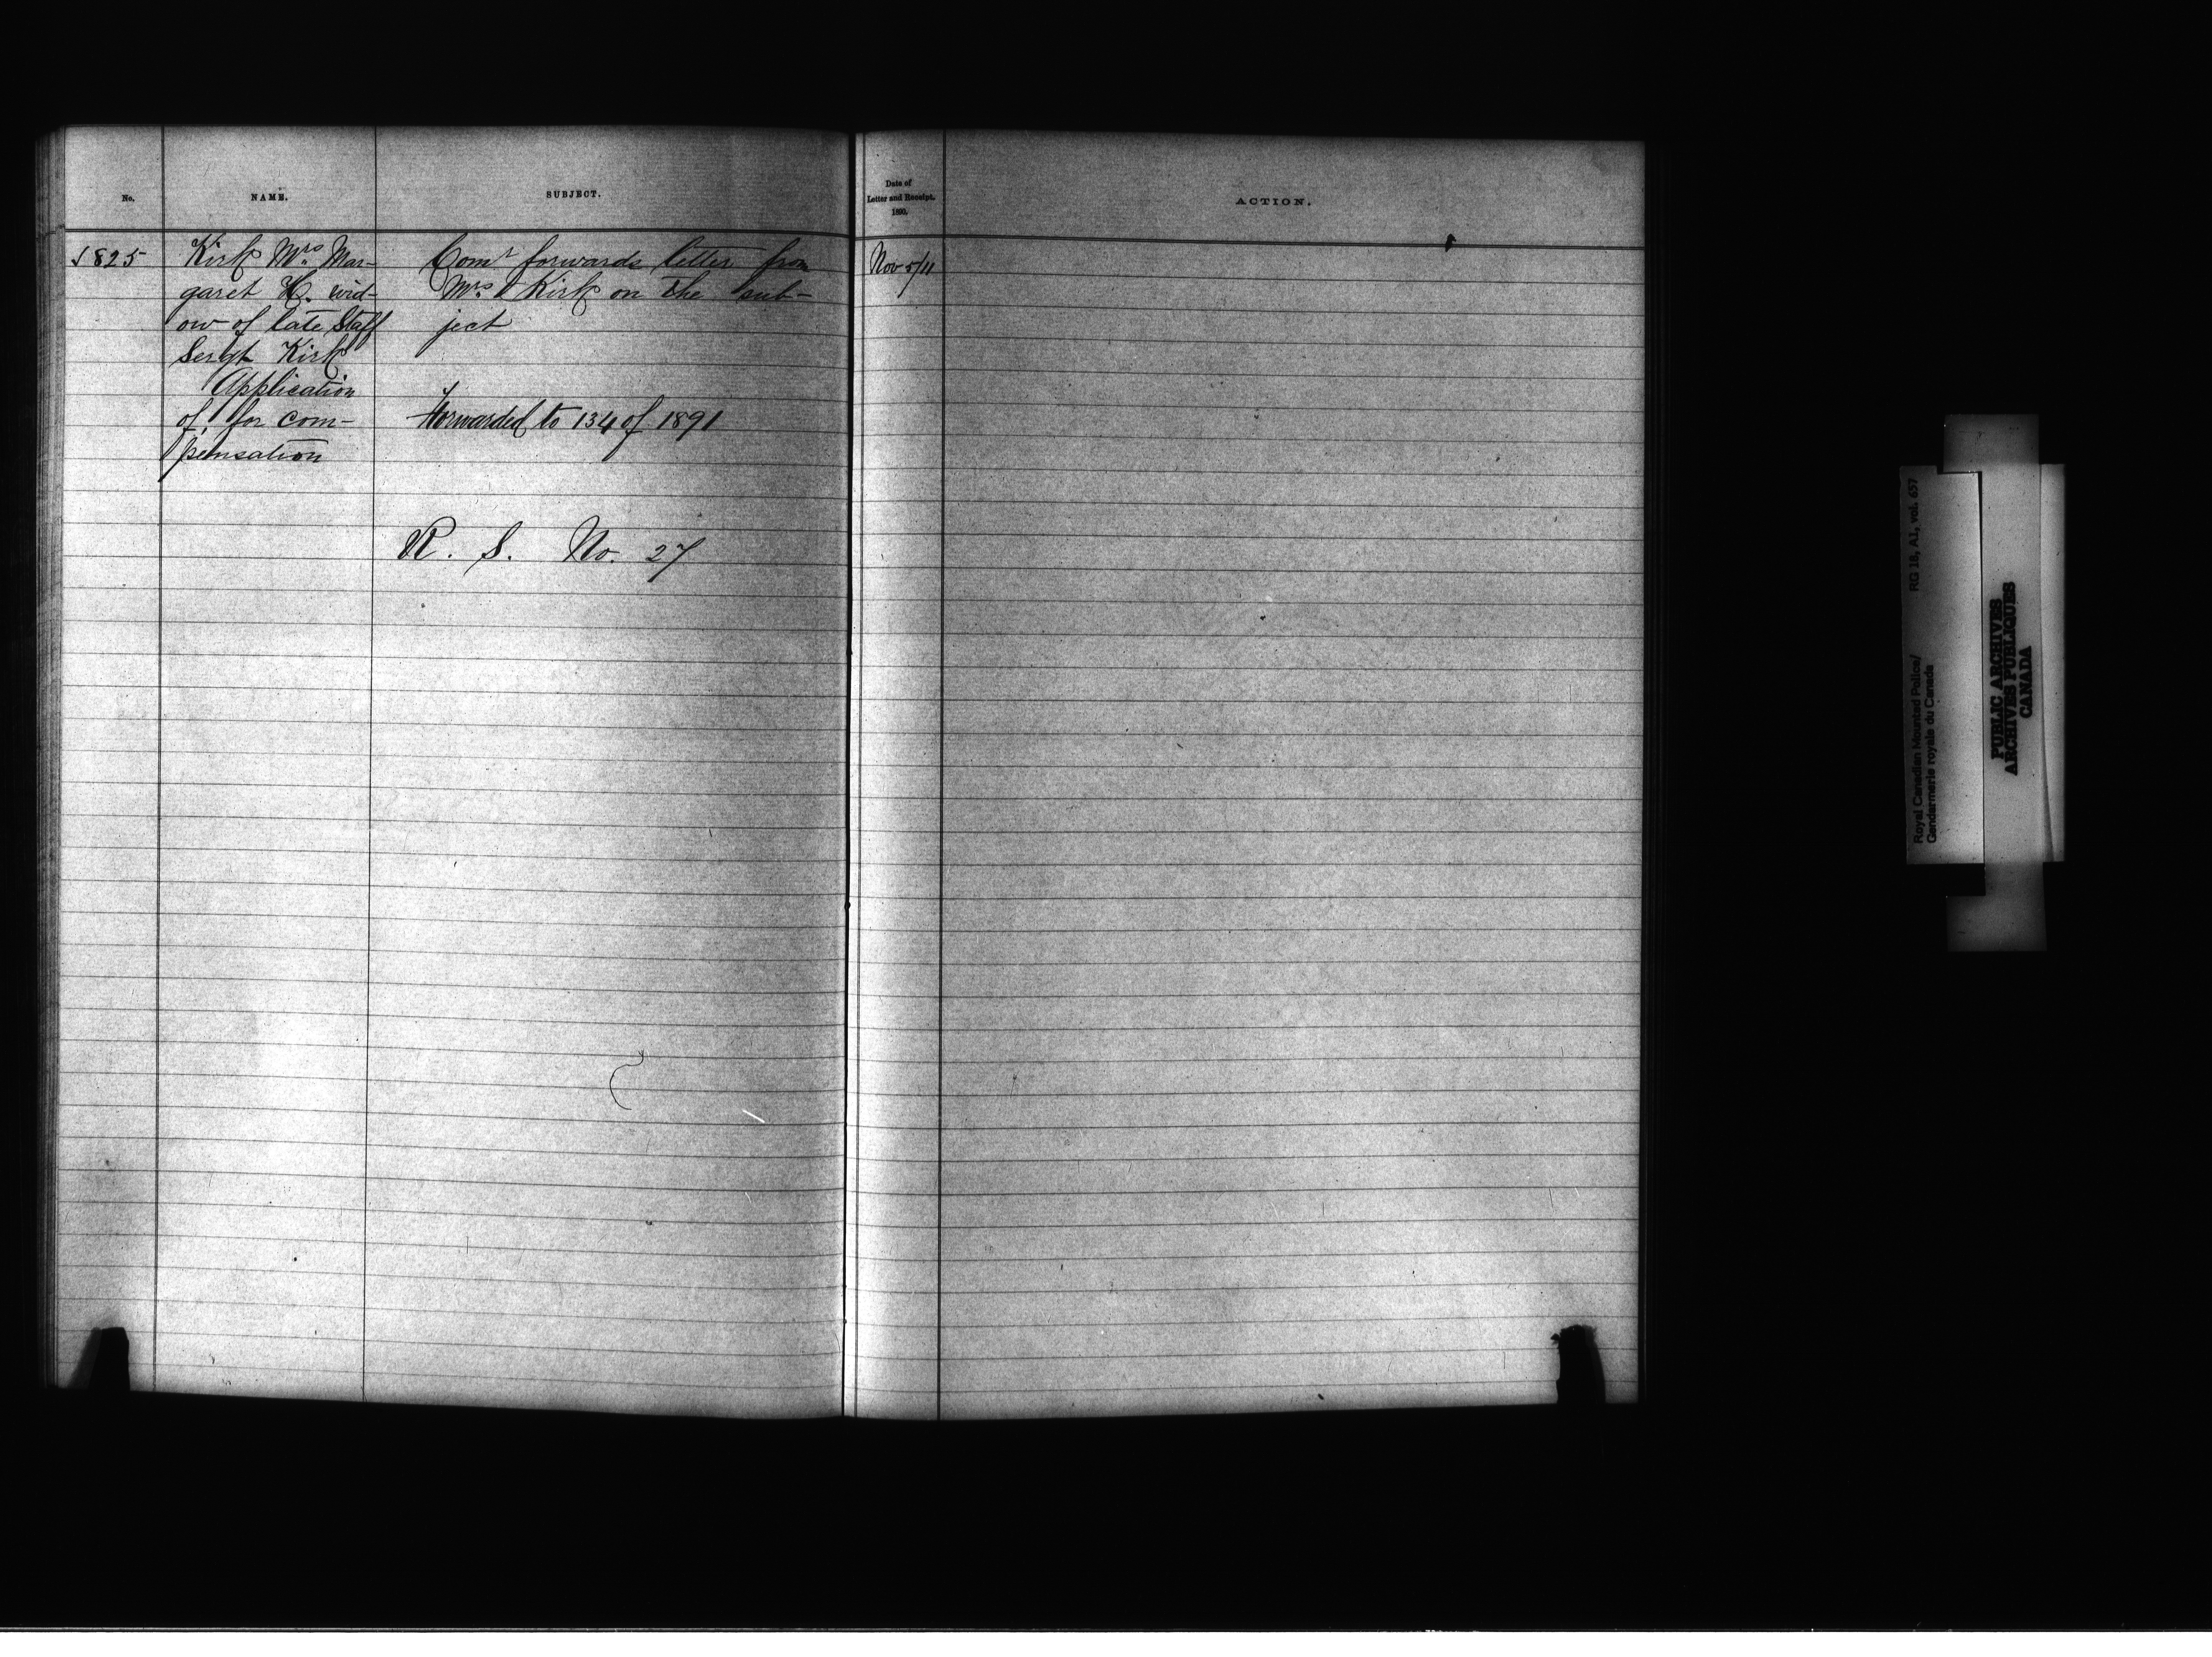 No.
NAME.
SUBJECT.
Date of
Letter and Receipt.
1890.
ACTION.
1825
Kirk Mrs Mar-
garet H. wid-
ow of late Staff
Sergt Kirk
Application
of, for com-
pensation
Comr forwards letter from
Mrs Kirk on the sub-
ject
Forwarded to 134 of 1891
R. S. No. 27
Nov 5/11
Royal Canadian Mounted Police/ RG 18, A1, vol. 657
Gendarmerie royale du Canada
PUBLIC ARCHIVES
ARCHIVES PUBLIQUES
CANADA